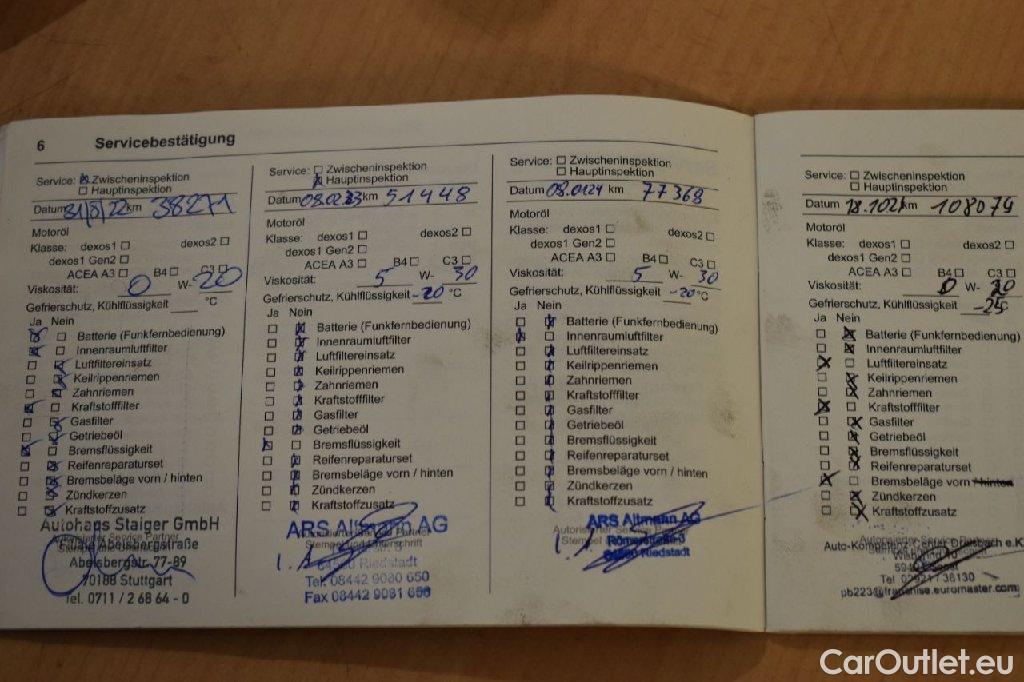 6 Servicebestätigung
Service: Zwischeninspektion
Hauptinspektion
Datum km 38271
Motoröl
Klasse: dexos1 dexos2
dexos1 Gen2
ACEA A3 B4 C3
Viskosität: 0 W- 20
Gefrierschutz, Kühlflüssigkeit °C
Ja Nein
Batterie (Funkfernbedienung)
Innenraumluftfilter
Luftfiltereinsatz
Keilrippenriemen
Zahnriemen
Kraftstofffilter
Gasfilter
Getriebeöl
Bremsflüssigkeit
Reifenreparaturset
Bremsbeläge vorn / hinten
Zündkerzen
Kraftstoffzusatz
Autohaus Staiger GmbH
Abelsbergstraße
Abelsbergstr. 77-89
70188 Stuttgart
Tel. 0711 / 2 68 64 - 0
Service: Zwischeninspektion
Hauptinspektion
Datum km 51448
Motoröl
Klasse: dexos1 dexos2
dexos1 Gen2
ACEA A3 B4 C3
Viskosität: 5 W- 30
Gefrierschutz, Kühlflüssigkeit -20 °C
Ja Nein
Batterie (Funkfernbedienung)
Innenraumluftfilter
Luftfiltereinsatz
Keilrippenriemen
Zahnriemen
Kraftstofffilter
Gasfilter
Getriebeöl
Bremsflüssigkeit
Reifenreparaturset
Bremsbeläge vorn / hinten
Zündkerzen
Kraftstoffzusatz
ARS Altmann AG
Riedstadt
Tel. 08442 9080 650
Fax 08442 9081 650
Service: Zwischeninspektion
Hauptinspektion
Datum 08.0124 km 77368
Motoröl
Klasse: dexos1 dexos2
dexos1 Gen2
ACEA A3 B4 C3
Viskosität: 5 W- 30
Gefrierschutz, Kühlflüssigkeit -20 °C
Ja Nein
Batterie (Funkfernbedienung)
Innenraumluftfilter
Luftfiltereinsatz
Keilrippenriemen
Zahnriemen
Kraftstofffilter
Gasfilter
Getriebeöl
Bremsflüssigkeit
Reifenreparaturset
Bremsbeläge vorn / hinten
Zündkerzen
Kraftstoffzusatz
ARS Altmann AG
Riedstadt
Service: Zwischeninspektion
Hauptinspektion
Datum km 108079
Motoröl
Klasse: dexos1 dexos2
dexos1 Gen2
ACEA A3 B4 C3
Viskosität: 0 W-
Gefrierschutz, Kühlflüssigkeit -25
Ja Nein
Batterie (Funkfernbedienung)
Innenraumluftfilter
Luftfiltereinsatz
Keilrippenriemen
Zahnriemen
Kraftstofffilter
Gasfilter
Getriebeöl
Bremsflüssigkeit
Reifenreparaturset
Bremsbeläge vorn / hinten
Zündkerzen
Kraftstoffzusatz
Tel. 02921 / 36130
pb223@franchise.euromaster.com
CarOutlet.eu